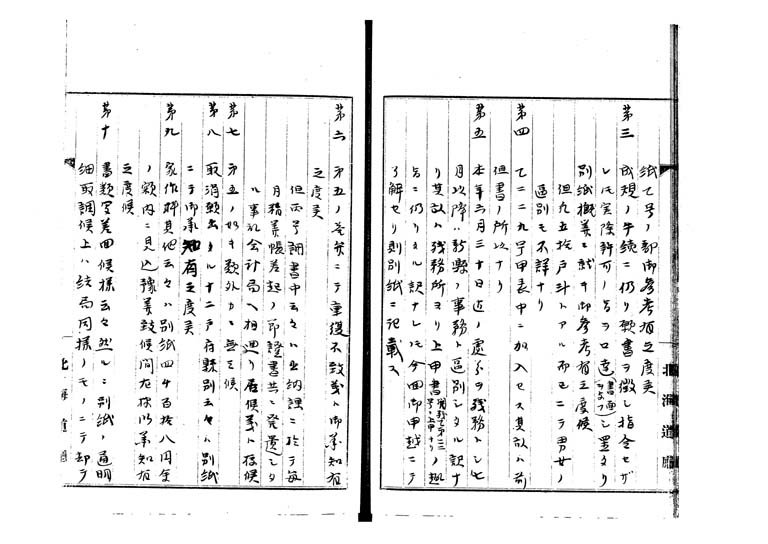 紙乙号ノ部御参考有之度候
第三 成規ノ手続ニ仍リ願書ヲ徴シ指令セザ
レ圧実際許可ノ旨ヲ口達シ置タリ
別紙概算ニ就キ御参考有之度候
但九五拾戸斗トアル而已ニテ男女ノ
区別モ不詳ナリ
第四 乙二二九早甲表中ニ加入セス其故ハ前
但書ノ所以ナリ
第五 本年六月三十日迄ノ処分ヲ残務トシ七
月以降ハ新県ノ事務ト区別シタル訳ナ
リ其故ハ残務所ヨリ上申書
ニ仍リタル訳ナレ圧今回御申越ニテ
了解セリ則別紙ニ記載ス
北海道庁
第六 第五ノ答弁ニテ重複不致義ト御承知有
之度候
但丙号調書中云々ハ出納課ニ於テ毎
月精算帳差起ノ節證書共ニ発遣シタ
ル事札会計局ヘ相廻リ居候義ト存候
第七 第五ノ如キ数外カニ無之候
第八 取消願出タル十二戸府県別云々ハ別紙
ニテ御承知有之度候
第九 家作料其他云々ハ別紙四千百拾八円余
ノ額内ニ見込豫算致候間左様御承知有
之度候
第十 書類写差回候様云々然ルニ別紙ノ通明
細取調候上ハ結局同様ノモノニテ却テ
北海道庁